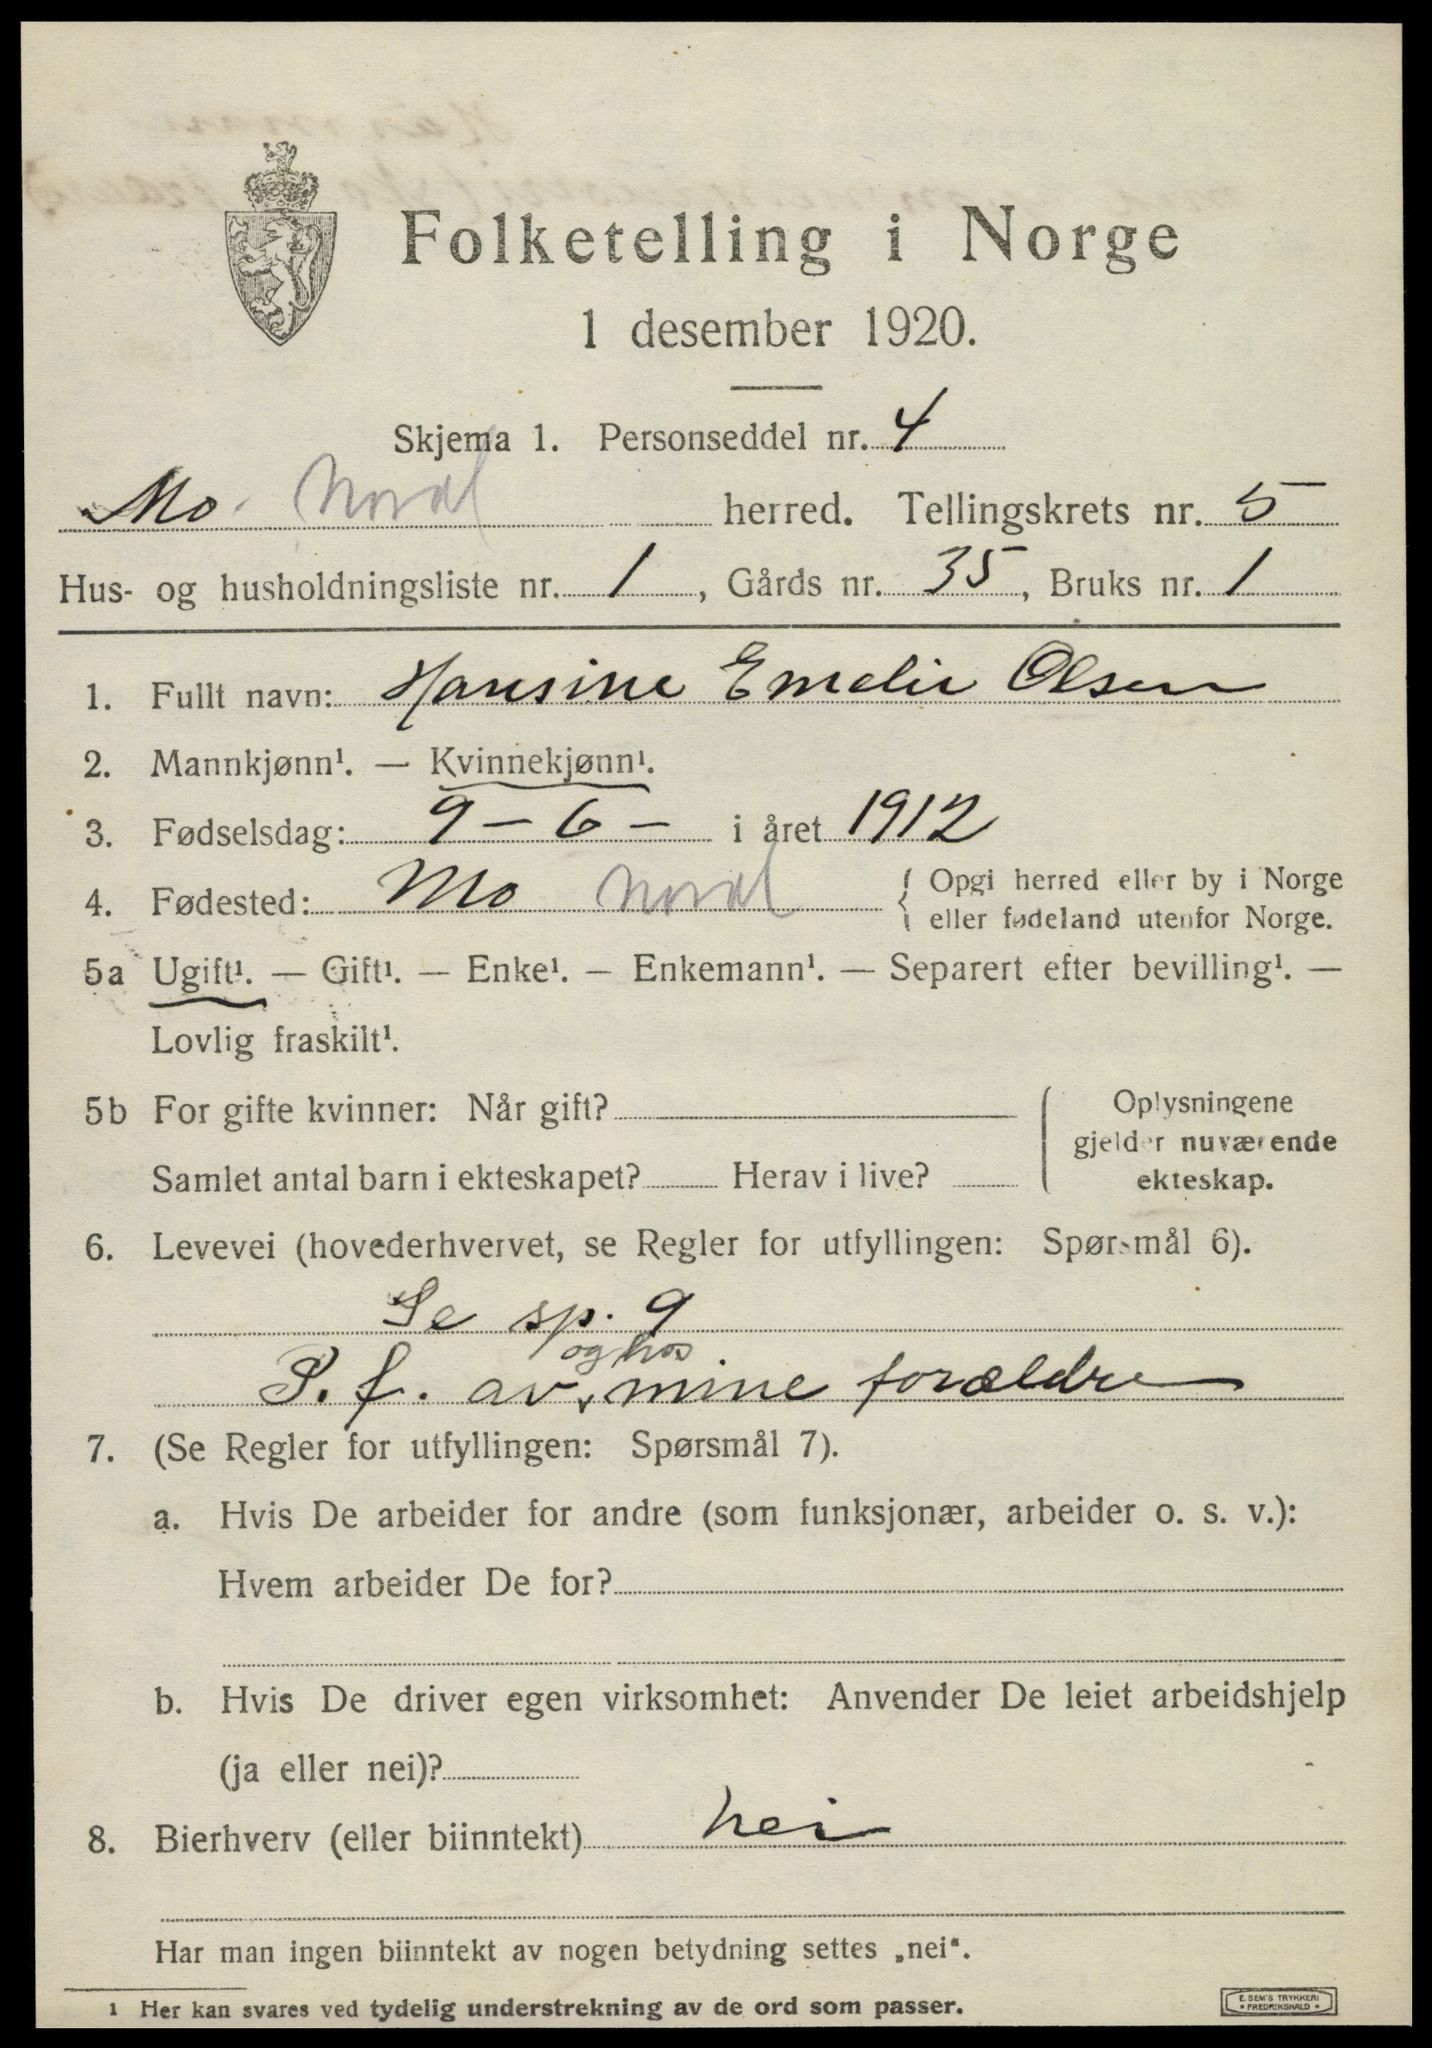 Folketelling i Norge
1 desember 1920.
Skjema 1. Personseddel nr. 4
Mo Nordl herred. Tellingskrets nr. 5
Hus- og husholdningsliste nr. 1, Gårds nr. 35, Bruks nr. 1
1. Fullt navn: Hansine Emelie Olsen
2. Mannkjønn¹. — Kvinnekjønn¹.
3. Fødselsdag: 9 – 6 – i året 1912
4. Fødested: Mo Nordl { Opgi herred eller by i Norge
eller fødeland utenfor Norge.
5a Ugift¹. — Gift¹. — Enke¹. — Enkemann¹. — Separert efter bevilling¹. —
Lovlig fraskilt¹.
5b For gifte kvinner: Når gift?
Samlet antal barn i ekteskapet? Herav i live?
Oplysningene
gjelder nuværende
ekteskap.
6. Levevei (hovederhvervet, se Regler for utfyllingen: Spørsmål 6).
Se sp. 9
og hos
P. f. av, mine forældre
7. (Se Regler for utfyllingen: Spørsmål 7).
a. Hvis De arbeider for andre (som funksjonær, arbeider o. s. v.):
Hvem arbeider De for?
b. Hvis De driver egen virksomhet: Anvender De leiet arbeidshjelp
(ja eller nei)?
8. Bierhverv (eller biinntekt) nei
Har man ingen biinntekt av nogen betydning settes „nei“.
1 Her kan svares ved tydelig understrekning av de ord som passer.
E. SEM'S TRYKKERI
• FREDRIKSHALD •